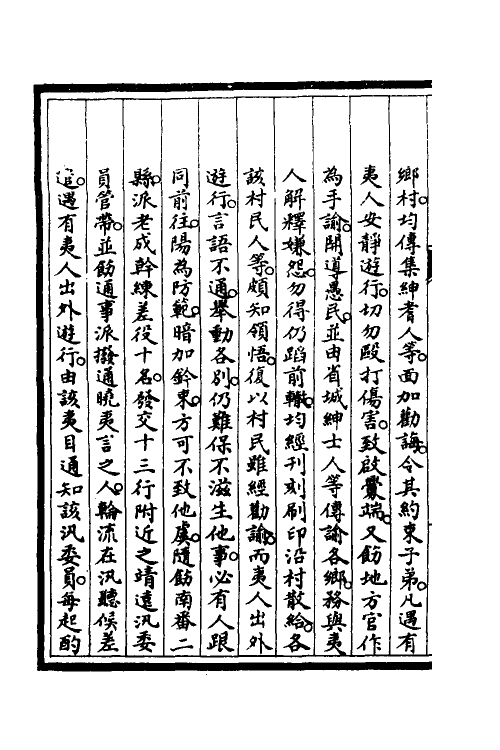 鄉村。均傳集紳耆人等。面加勸誨。令其約束子弟。凡遇有
夷人安靜遊行。切勿毆打傷害。致啟釁端。又飭地方官作
為手諭。開導愚民。並由省城紳士人等傳諭各鄉。務與夷
人解釋嫌怨。勿得仍蹈前轍。均經刊刻刷印沿村散給。各
該村民人等。頗知領悟。復以村民雖經勸諭。而夷人出外
遊行。言語不通。舉動各別。仍難保不滋生他事。必有人跟
同前往。陽為防範。暗加鈐束。方可不致他虞。隨飭南番二
縣。派老成幹練差役十名。發交十三行附近之靖遠汛委
員管帶。並飭通事派撥通曉夷言之人。輪流在汛聽候差
遣。遇有夷人出外遊行。由該夷目通知該汛委員。每起酌